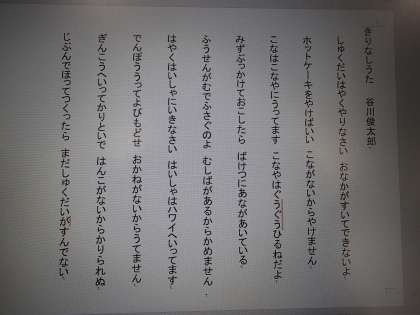 きりなしうた　谷川俊太郎
しゅくだいはやくやりなさい　おなかがすいてできないよ
ホットケーキをやけばいい　こながないからやけません
こなはこなやにうってます　こなやはぐうぐうひるねだよ
みずぶっかけておこしたら　ばけつにあながあいている
ふうせんがむでふさぐのよ　むしばがあるからかめません
はやくはいしゃにいきなさい　はいしゃはハワイへいってます
でんぽううってよびもどせ　おかねがないからうてません
ぎんこうへいってかりといで　はんこがないからかりられぬ
じぶんでほってつくったら　まだしゅくだいがすんでない